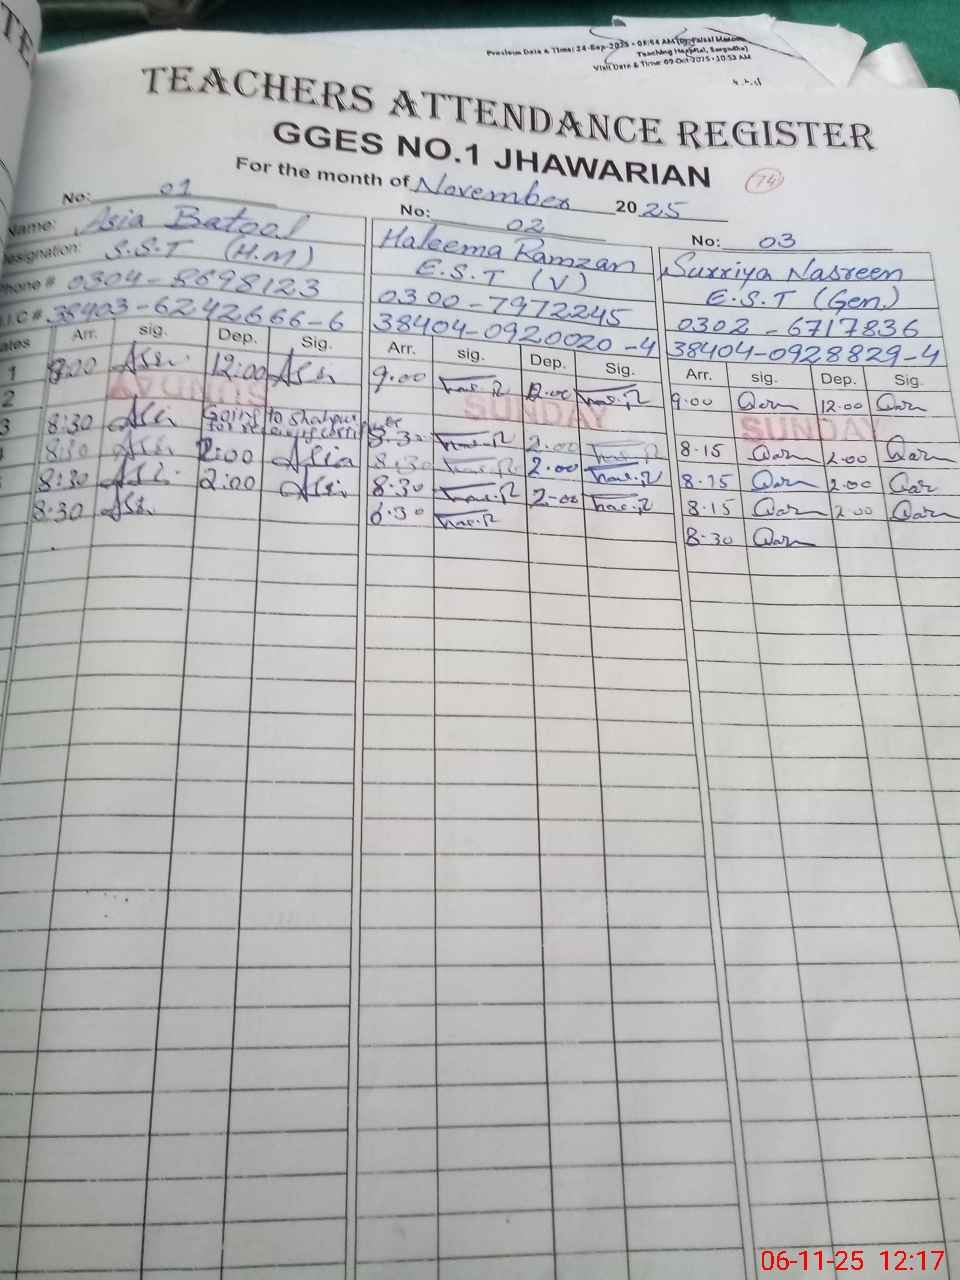 TE
Previous Date & Time: 24-Sep-2025 - 08:54 AM
Teaching Hospital, Sargodha)
Visit Date & Time: 09-Oct-2025 - 10:53 AM
TEACHERS ATTENDANCE REGISTER
GGES NO.1 JHAWARIAN
74
For the month of November 2025
No: 01 No: 02 No: 03
Name: Asia Batool Haleema Ramzan Surriya Nasreen
Designation: S.S.T (H.M) E.S.T (V) E.S.T (Gen)
Phone # 0304-8698123 0300-7972245 0302-6717836
I.C #. 38403-6242666-6 38404-0920020-4 38404-0928829-4
ates Arr. sig. Dep. Sig. Arr. sig. Dep. Sig. Arr. sig. Dep. Sig.
1 9:00 12:00 9.00 12.00 9.00 12.00
2 SUNDAY SUNDAY SUNDAY
3 8:30 Going to Shahpur for 8.30 2.00 8.15 2.00
8:30 2:00 Asia 8.30 2.00 8.15 2.00
8:30 2:00 8.30 2.00 8.15 2.00
8.30 8.30 8.30
06-11-25 12:17